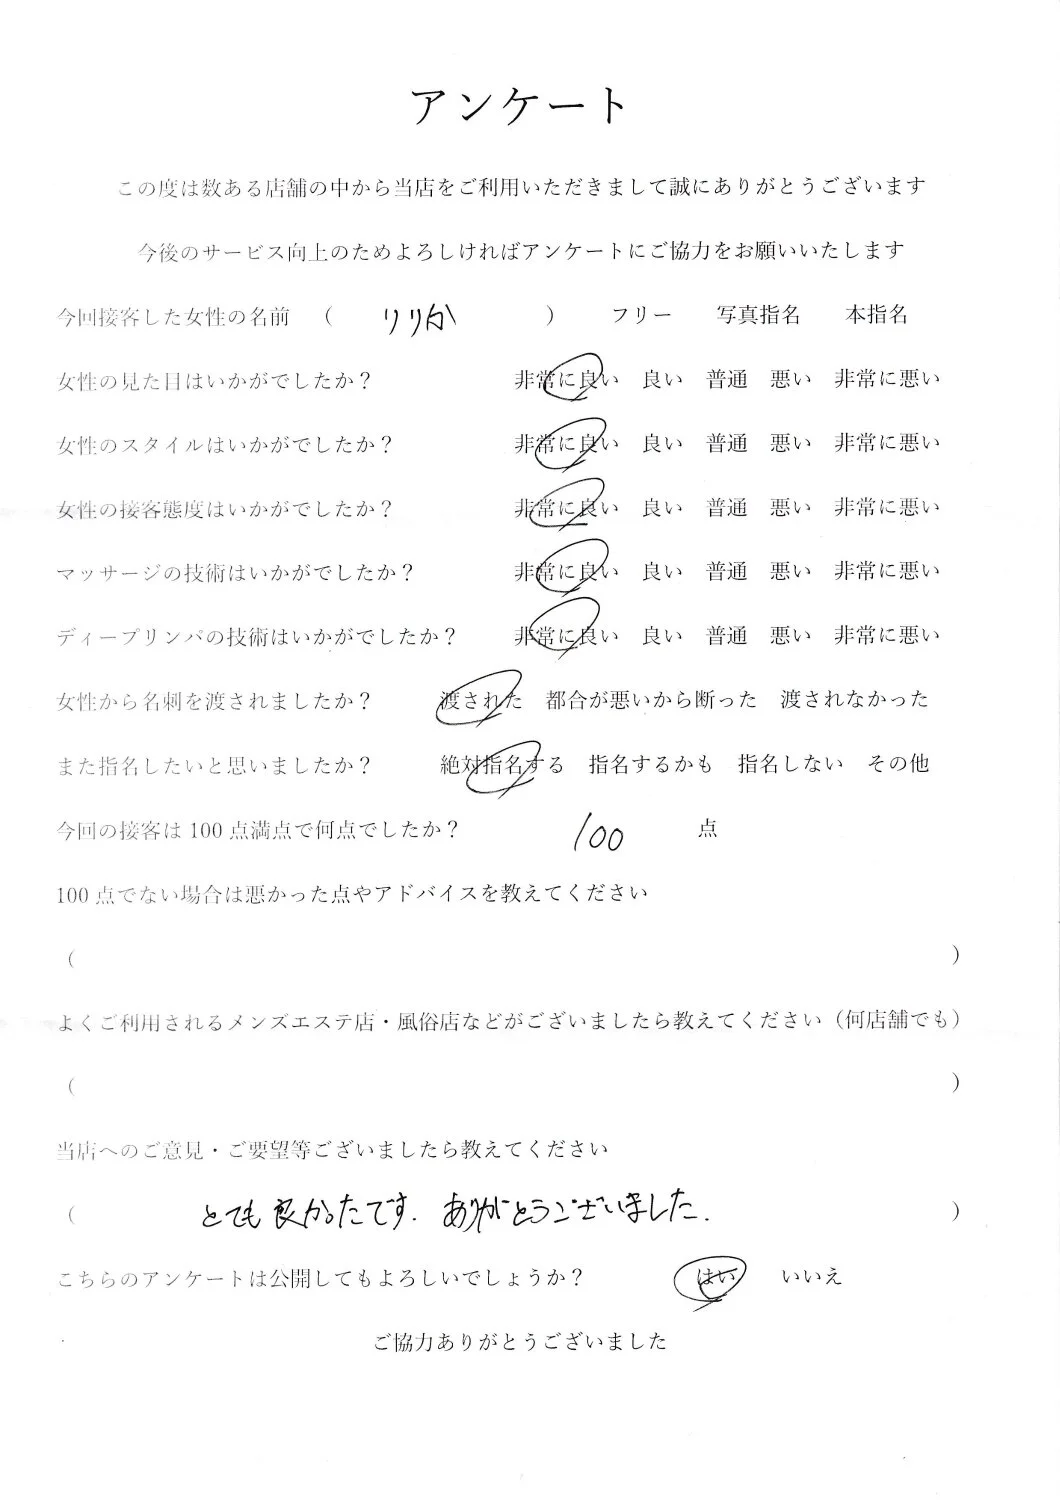 アンケート
この度は数ある店舗の中から当店をご利用いただきまして誠にありがとうございます
今後のサービス向上のためよろしければアンケートにご協力をお願いいたします
今回接客した女性の名前 （ りりか ） フリー 写真指名 本指名
女性の見た目はいかがでしたか？ 非常に良い 良い 普通 悪い 非常に悪い
女性のスタイルはいかがでしたか？ 非常に良い 良い 普通 悪い 非常に悪い
女性の接客態度はいかがでしたか？ 非常に良い 良い 普通 悪い 非常に悪い
マッサージの技術はいかがでしたか？ 非常に良い 良い 普通 悪い 非常に悪い
ディープリンパの技術はいかがでしたか？ 非常に良い 良い 普通 悪い 非常に悪い
女性から名刺を渡されましたか？ 渡された 都合が悪いから断った 渡されなかった
また指名したいと思いましたか？ 絶対指名する 指名するかも 指名しない その他
今回の接客は 100 点満点で何点でしたか？ 100 点
100 点でない場合は悪かった点やアドバイスを教えてください
（ ）
よくご利用されるメンズエステ店・風俗店などがございましたら教えてください（何店舗でも）
（ ）
当店へのご意見・ご要望等ございましたら教えてください
（ とても良かったです. ありがとうございました. ）
こちらのアンケートは公開してもよろしいでしょうか？ はい いいえ
ご協力ありがとうございました